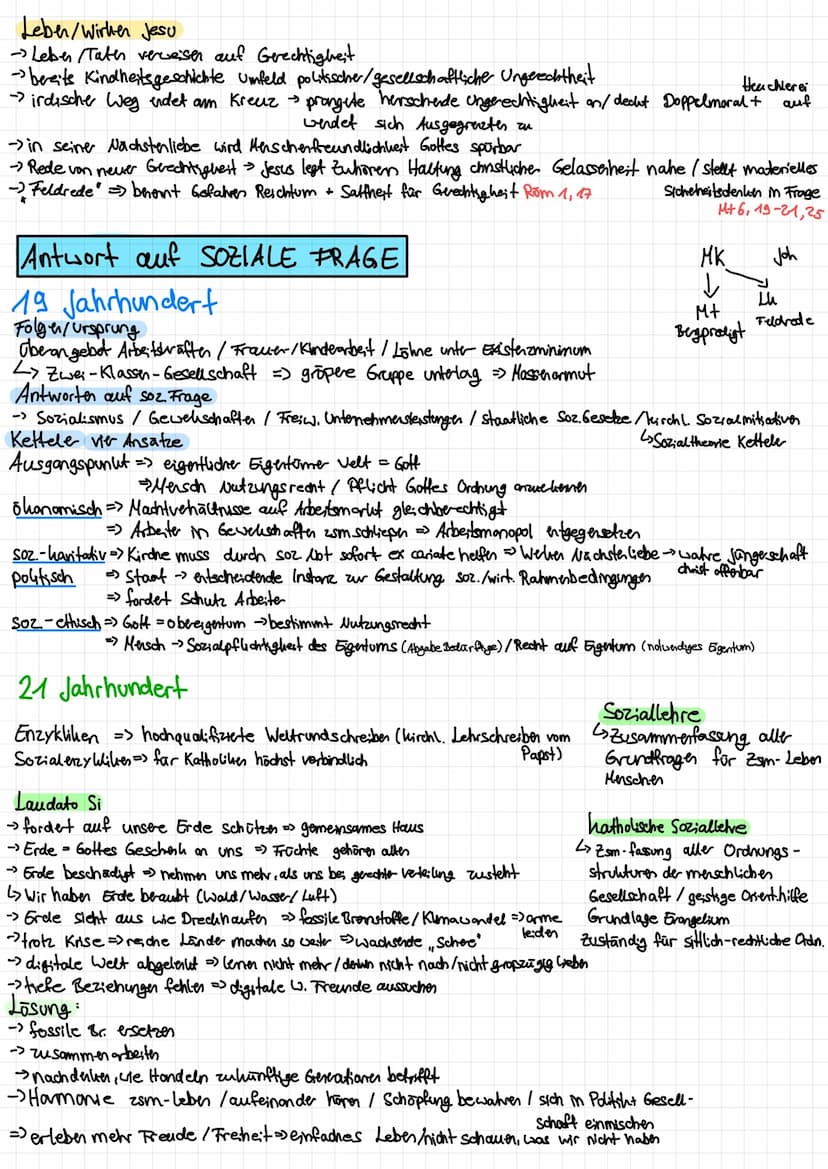 Leben/Wirken Jesu
→ Leben/Taten verweisen auf Gerechtigkeit
→ bereits Kindheitsgeschichte Umfeld politischer/gesellschaftlicher Ungerechtheit
→ irdischer Weg endet am Kreuz → prangte herschende Ungerechtigkeit an/deckt Doppelmoral + Heuchlerei auf
wendet sich Ausgegrenzten zu
→ in seiner Nächstenliebe wird Menschenfreundlichkeit Gottes spürbar
→ Rede von neuer Gerechtigkeit → Jesus legt Zuhörern Haltung christlicher Gelassenheit nahe / stellt materielles
Sicherheitsdenken in Frage
→ "Feldrede" => benennt Gefahren Reichtum + Sattheit für Gerechtigkeit Röm 1, 17
Mt 6, 19-21, 25
Antwort auf SOZIALE FRAGE
MK Joh
↓
Mt Lk
Bergpredigt Feldrede
19 Jahrhundert
Folgen/Ursprung
Überangebot Arbeitskräften / Frauen/Kinderarbeit / Löhne unter Existenzminimum
↳ Zwei-Klassen-Gesellschaft => größere Gruppe unterlag => Massenarmut
Antworten auf soz. Frage
→ Sozialismus / Gewerkschaften / Freiw. Unternehmensleistungen / staatliche Soz. Gesetze / kirchl. Sozialinitiativen
↳ Sozialtheorie Ketteler
Ketteler vier Ansätze
Ausgangspunkt => eigentlicher Eigentümer Welt = Gott
=> Mensch Nutzungsrecht / Pflicht Gottes Ordnung anzuerkennen
ökonomisch => Machtverhältnisse auf Arbeitsmarkt gleichberechtigt
=> Arbeiter in Gewerkschaften zsmschließen => Arbeitsmonopol entgegensetzen
soz-karitativ => Kirche muss durch soz. Not sofort ex cariate helfen => Werken Nächstenliebe → wahre Jüngerschaft
christ offenbar
politisch => Staat → entscheidende Instanz zur Gestaltung soz./wirt. Rahmenbedingungen
=> fordert Schutz Arbeiter
soz-ethisch => Gott = obereigentum → bestimmt Nutzungsrecht
=> Mensch → Sozialpflichtigkeit des Eigentums (Abgabe Bedürftige) / Recht auf Eigentum (notwendiges Eigentum)
21 Jahrhundert
Enzykliken => hochqualifizierte Weltrundschreiben (kirchl. Lehrschreiben vom
Papst)
Sozialenzykliken => für Katholiken höchst verbindlich
Soziallehre
↳ Zusammenfassung aller
Grundfragen für Zsm-Leben
Menschen
Laudato Si
→ fordert auf unsere Erde schützen => gemeinsames Haus
→ Erde = Gottes Geschenk an uns => Früchte gehören allen
→ Erde beschädigt => nehmen uns mehr, als uns bei gerechter Verteilung zusteht
↳ Wir haben Erde beraubt (Wald/Wasser/Luft)
→ Erde sieht aus wie Dreckhaufen => fossile Brennstoffe/Klimawandel => arme
leiden
→ trotz Krise => reiche Länder machen so weiter => wachsende "Schere"
→ digitale Welt abgelenkt => lernen nicht mehr/denken nicht nach/nicht großzügig lieben
→ tiefe Beziehungen fehlen => digitale W. Freunde aussuchen
katholische Soziallehre
↳ Zsm-fassung aller Ordnungs-
strukturen der menschlichen
Gesellschaft / geistige Orient.hilfe
Grundlage Evangelium
Zuständig für sittlich-rechtliche Ordn.
Lösung:
→ fossile Br. ersetzen
→ zusammenarbeiten
→ nachdenken, wie Handeln zukünftige Generationen betrifft
→ Harmonie zsm-leben / aufeinander hören / Schöpfung bewahren / sich in Politik + Gesell-
schaft einmischen
=> erleben mehr Freude/Freiheit => einfaches Leben/nicht schauen, was wir nicht haben